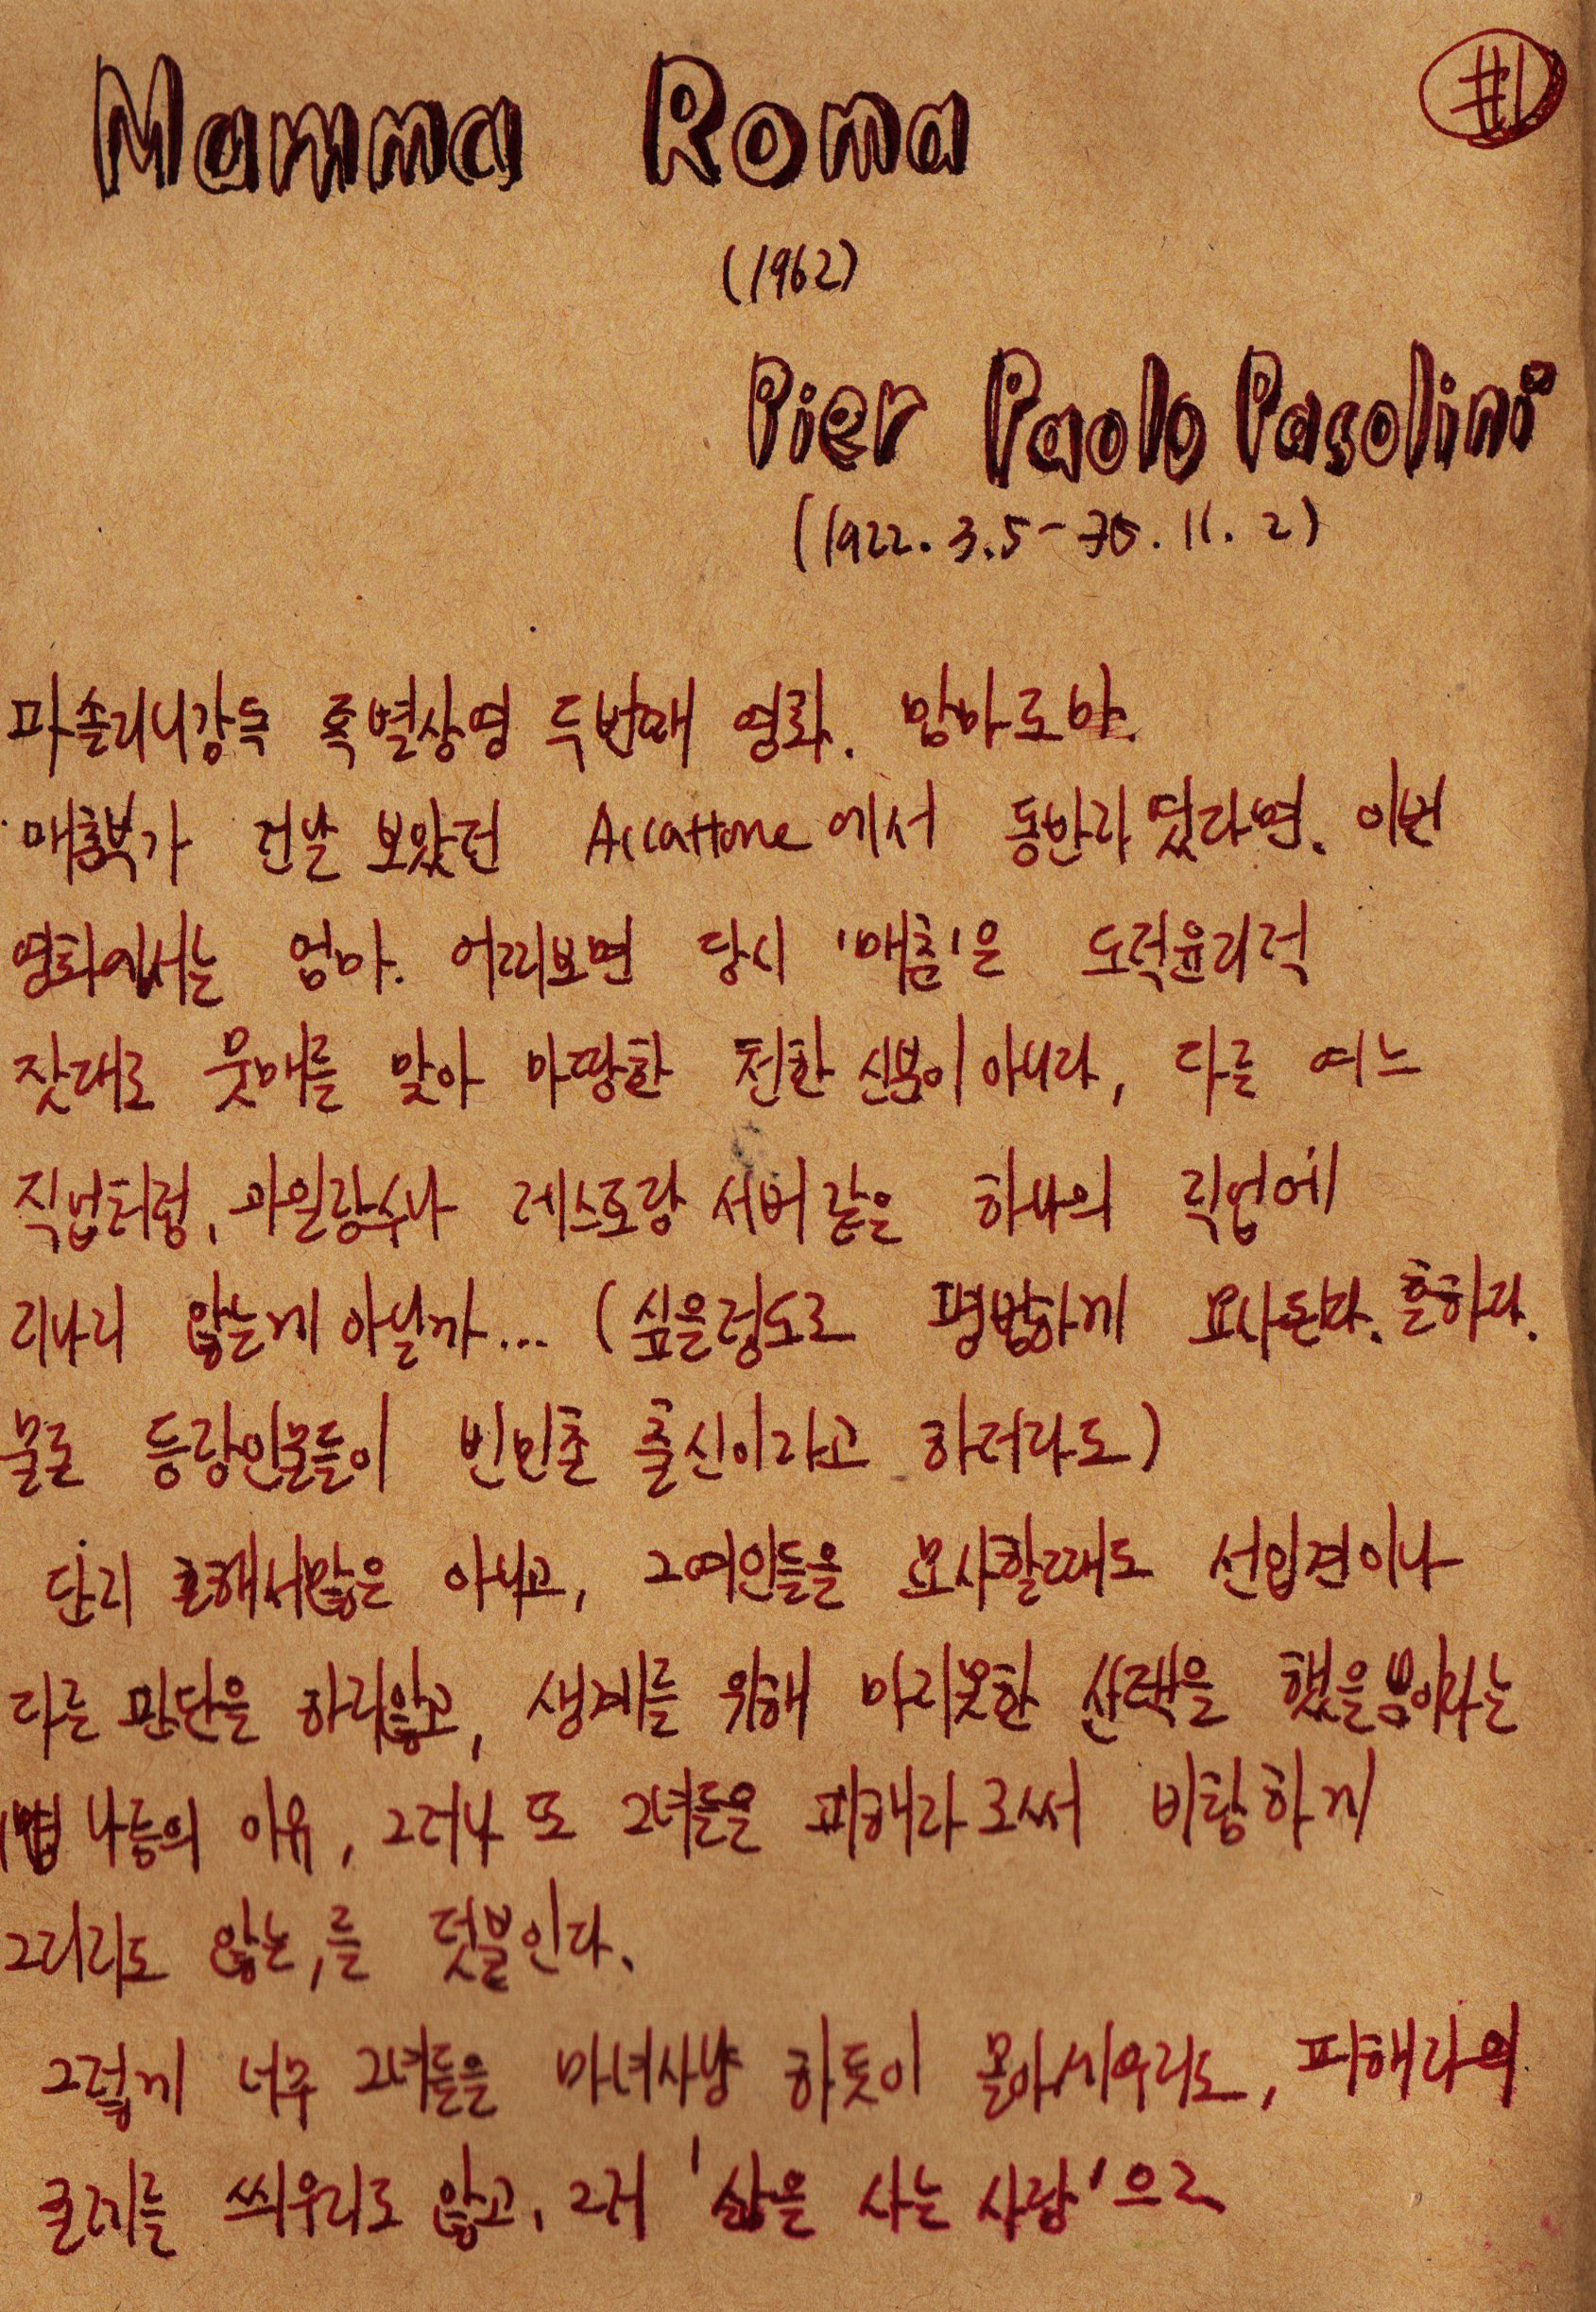 Mamma Roma
#1
(1962)
Pier Paolo Pasolini
(1922. 3.5 - 75. 11. 2)
파솔리니감독 특별상영 두번째 영화. 맘마로마.
매춘부가 전날 보았던 Accattone에서 동반자였다면, 이번
영화에서는 엄마. 어찌보면 당시 '매춘'은 도덕윤리적
잣대로 뭇매를 맞아 마땅한 천한 신분이 아니라, 다른 여느
직업처럼, 과일장수나 레스토랑 서버같은 하나의 직업에
지나지 않는게 아닐까... (싶을정도로 평범하게 묘사된다. 흔하다.
물론 등장인물들이 빈민촌 출신이라고 하더라도)
단지 흔해서많은 아니고, 그여인들을 묘사할때도 선입견이나
다른 판단을 하지않고, 생계를 위해 마지못한 선택을 했을뿐이라는
나름의 이유, 그러나 또 그녀들을 피해자로써 비참하게
그리지도 않는,를 덧붙인다.
그렇게 너무 그녀들을 마녀사냥 하듯이 몰아세우지도, 피해자의
굴레를 씌우지도 않고, 그저 '삶을 사는 사람'으로